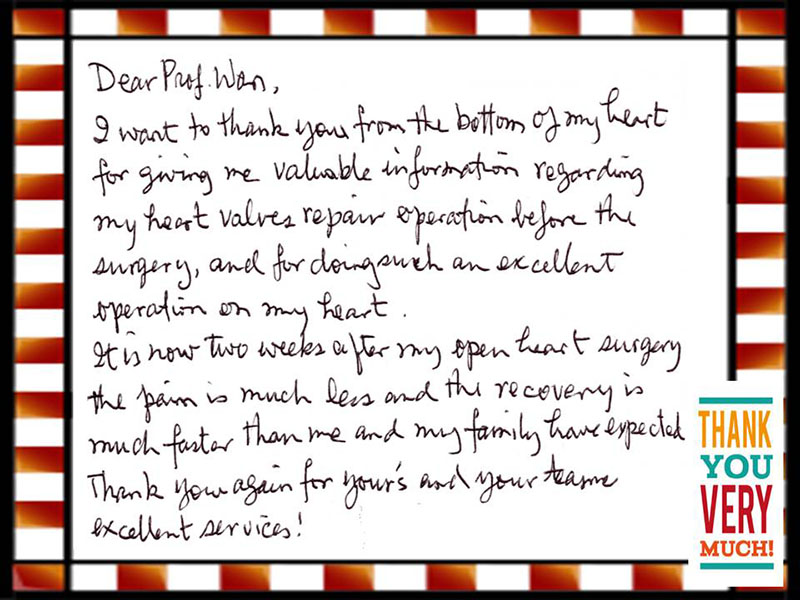 Dear Prof. Wan,
I want to thank you from the bottom of my heart
for giving me valuable information regarding
my heart valves repair operation before the
surgery, and for doing such an excellent
operation on my heart.
It is now two weeks after my open heart surgery
the pain is much less and the recovery is
much faster than me and my family have expected
Thank you again for your's and your teams
excellent services!
THANK
YOU
VERY
MUCH!